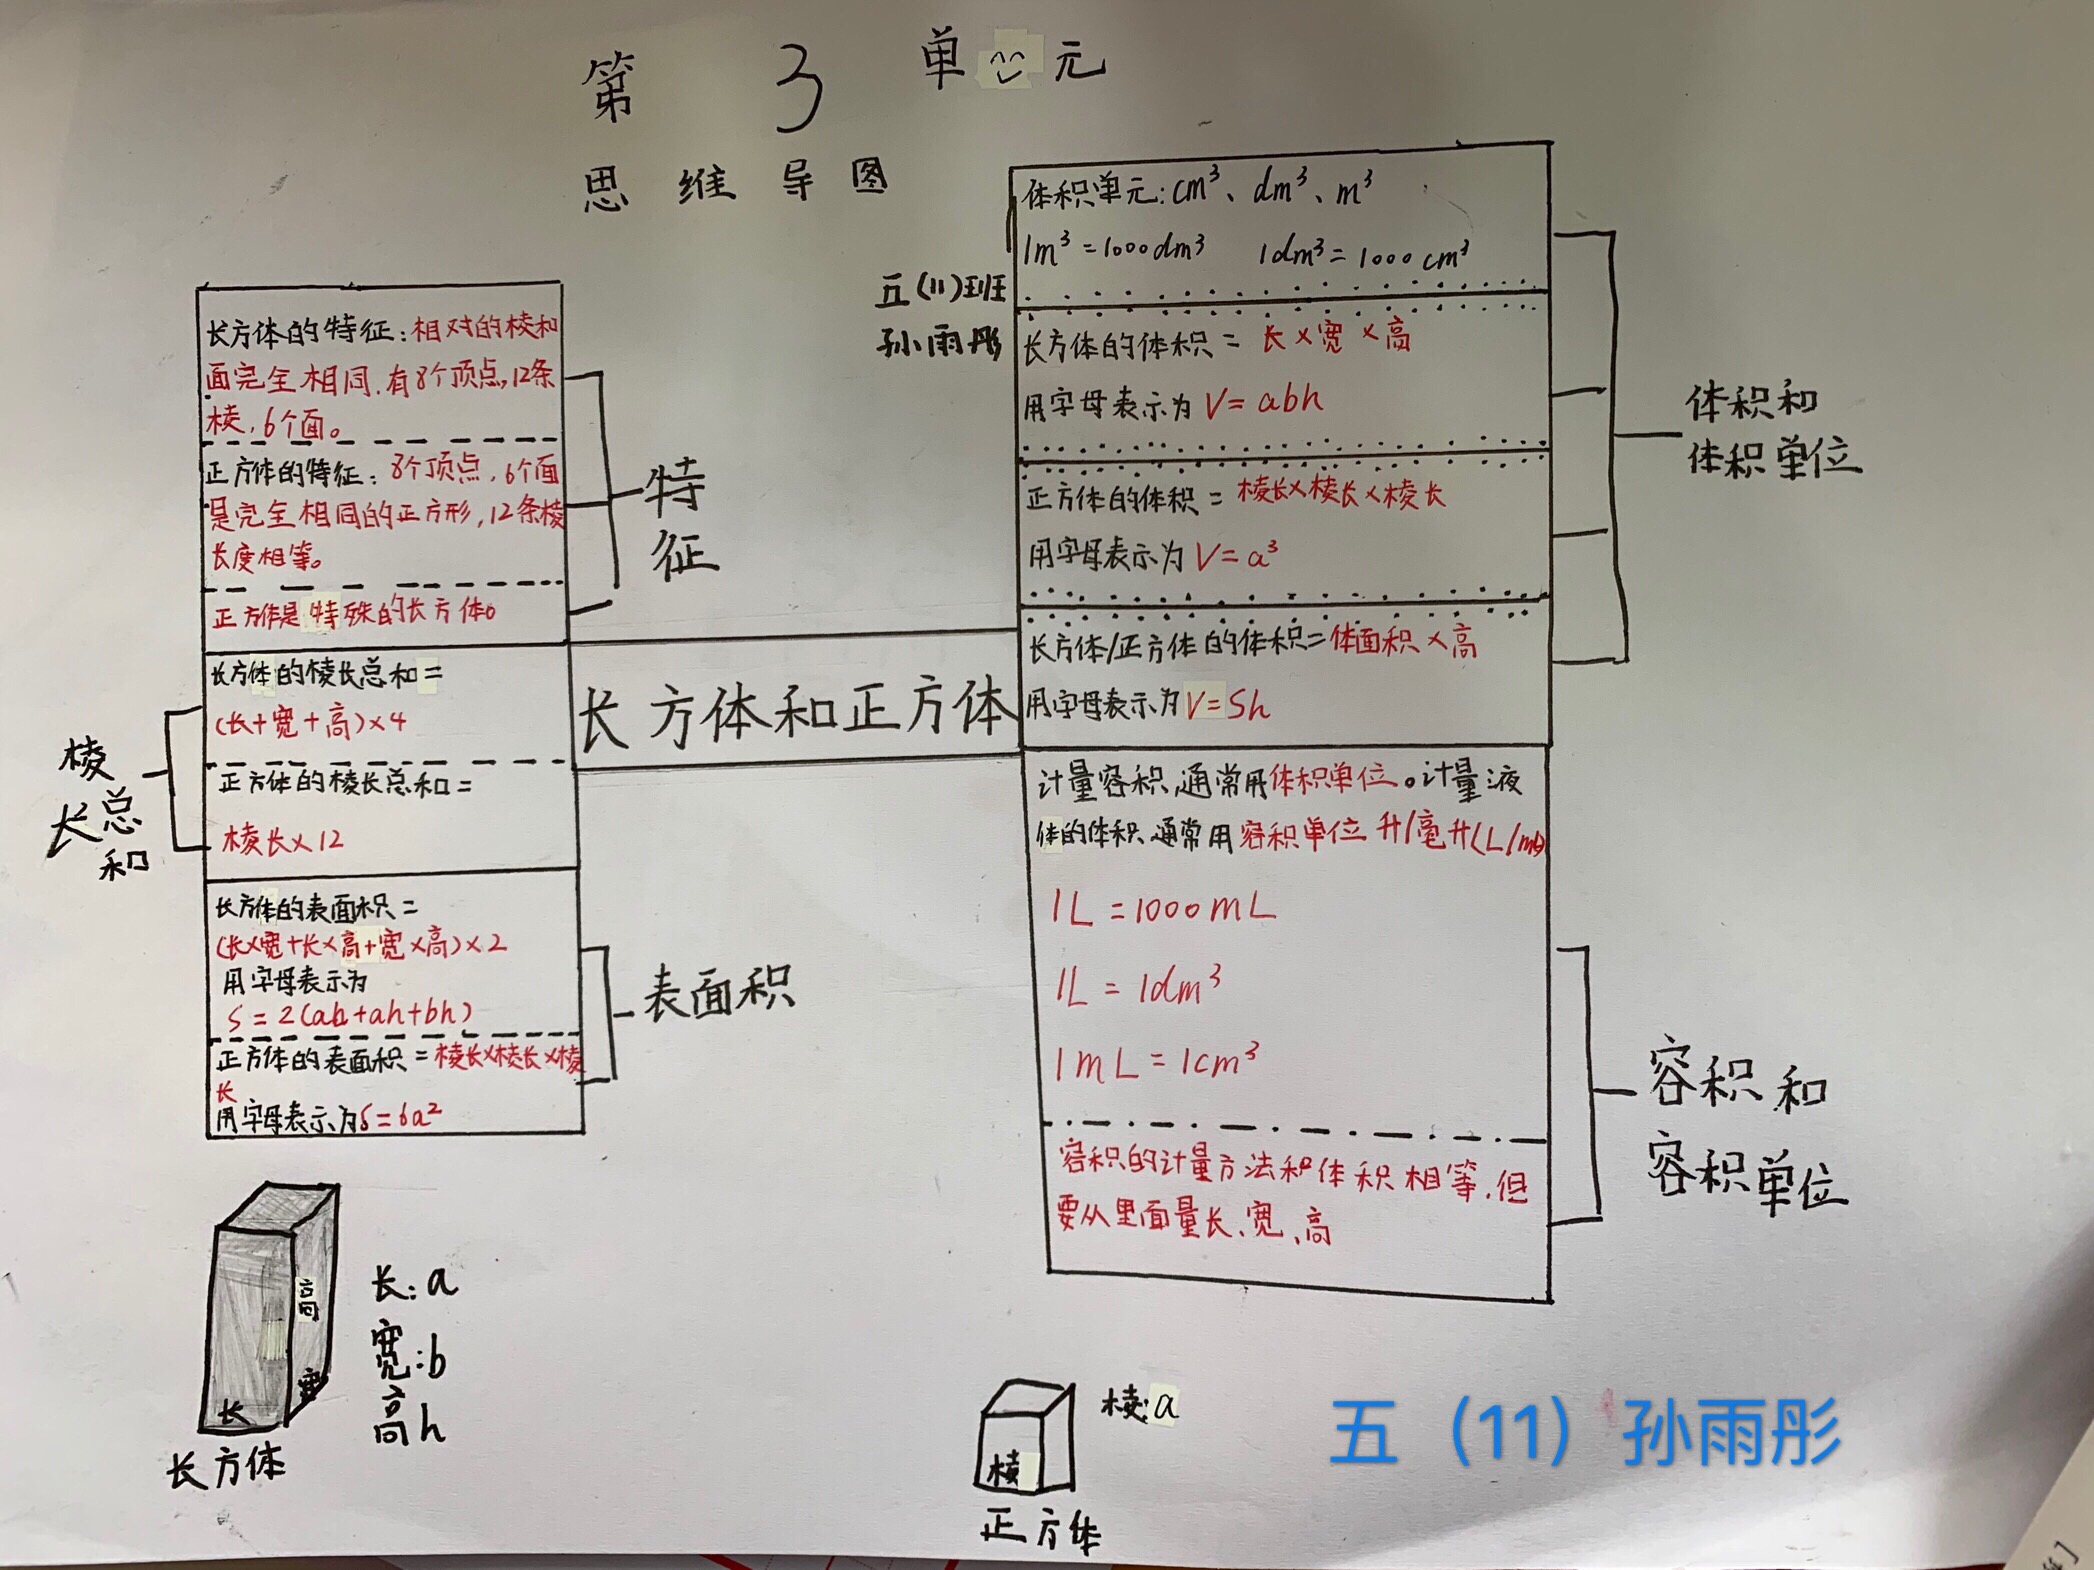 第 3 单 元
思 维 导 图
五(11)班
孙雨彤
长方体的特征:相对的棱和
面完全相同.有8个顶点,12条
棱,6个面。
正方体的特征:8个顶点,6个面
是完全相同的正方形,12条棱
长度相等。
正方体是特殊的长方体。
特
征
长方体的棱长总和=
(长+宽+高)×4
正方体的棱长总和=
棱长×12
棱
长总
和
长方体的表面积=
(长×宽+长×高+宽×高)×2
用字母表示为
S=2(ab+ah+bh)
正方体的表面积=棱长×棱长×棱
长
用字母表示为S=6a²
表面积
长方体和正方体
体积单元:cm³、dm³、m³
1m³=1000dm³ 1dm³=1000cm³
长方体的体积=长×宽×高
用字母表示为V=abh
正方体的体积=棱长×棱长×棱长
用字母表示为V=a³
长方体/正方体的体积=体面积×高
用字母表示为V=Sh
体积和
体积单位
计量容积,通常用体积单位。计量液
体的体积,通常用容积单位升/毫升(L/ml)
1L=1000mL
1L=1dm³
1mL=1cm³
容积的计量方法和体积相等,但
要从里面量长、宽、高
容积和
容积单位
高
宽
长
长方体
长:a
宽:b
高h
棱
棱:a
正方体
五（11）孙雨彤